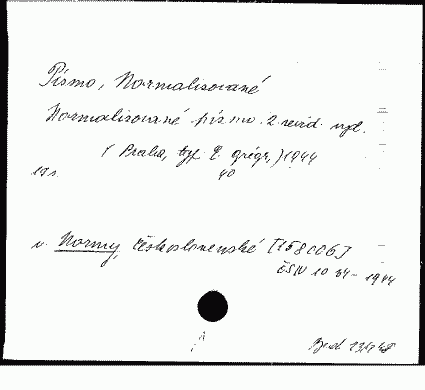 Písmo, Normalisované
Normalisované písmo. 2. revid. vyd.
(Praha, typ. E. Grégr,) 1944
19 s. 40
v. Normy, československé [158cc6]
ČSN 10 34 - 1944